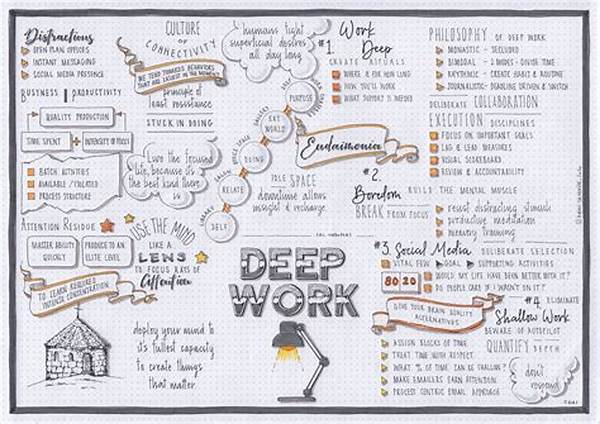 Distractions
OPEN PLAN OFFICES
INSTANT MESSAGING
SOCIAL MEDIA PRESENCE
BUSINESS | PRODUCTIVITY
QUALITY PRODUCTION
TIME SPENT + INTENSITY OF FOCUS
BATCH ACTIVITIES
AVAILABLE / ISOLATED
PROCESS STRUCTURE
ATTENTION RESIDUE
MASTER ABILITY
QUICKLY
PRODUCE TO AN
ELITE LEVEL
TO LEARN REQUIRES
INTENSE CONCENTRATION
CULTURE
OF
CONNECTIVITY
WE TEND TOWARDS BEHAVIORS
THAT ARE EASIEST IN THE MOMENT
principle of
least resistance
STUCK IN DOING
I live the focused
life, because it's
the best kind there
is
USE THE MIND
LIKE A
LENS
TO FOCUS RAYS OF
Attention
deploy your mind to
it's fullest capacity
to create things
that matter
humans fight
superficial desires
all day long
PURPOSE
EXT
WORLD
DOING
RELATE
SELF
LIBRARY
SALON
OFFICE SPACE
GALLERY
Eudaimonia
IDLE SPACE
downtime allows
insight & recharge
DEEP
WORK
#1.
Work
Deep
CREATE RITUALS
WHERE & FOR HOW LONG
HOW YOU'LL WORK
WHAT SUPPORT IS NEEDED
PHILOSOPHY OF DEEP WORK
MONASTIC - SECLUDED
BIMODAL - 2 MODES - DIVIDE TIME
RHYTHMIC - CREATE HABIT & ROUTINE
JOURNALISTIC - DEADLINE DRIVEN & SWITCH
DELIBERATE COLLABORATION
EXECUTION DISCIPLINES
FOCUS ON IMPORTANT GOALS
LAG & LEAD MEASURES
VISUAL SCOREBOARD
REVIEW & ACCOUNTABILITY
#2.
Boredom
BUILD THE MENTAL MUSCLE
BREAK FROM FOCUS
resist distracting stimuli
productive meditation
memory training
#3. Social Media DELIBERATE SELECTION
VITAL FEW GOAL SUPPORTING ACTIVITIES
80 20
WOULD MY LIFE HAVE BEEN BETTER WITH IT?
DO PEOPLE CARE IF I WASN'T ON IT?
GIVE YOUR BRAIN QUALITY
ALTERNATIVES
#4. ELIMINATE
Shallow Work
BEWARE OF AUTOPILOT
QUANTIFY DEPTH
ASSIGN BLOCKS OF TIME
TREAT TIME WITH RESPECT
WHAT % OF TIME CAN BE SHALLOW?
MAKE EMAILERS EARN ATTENTION
PROCESS CENTRIC EMAIL APPROACH
don't
respond